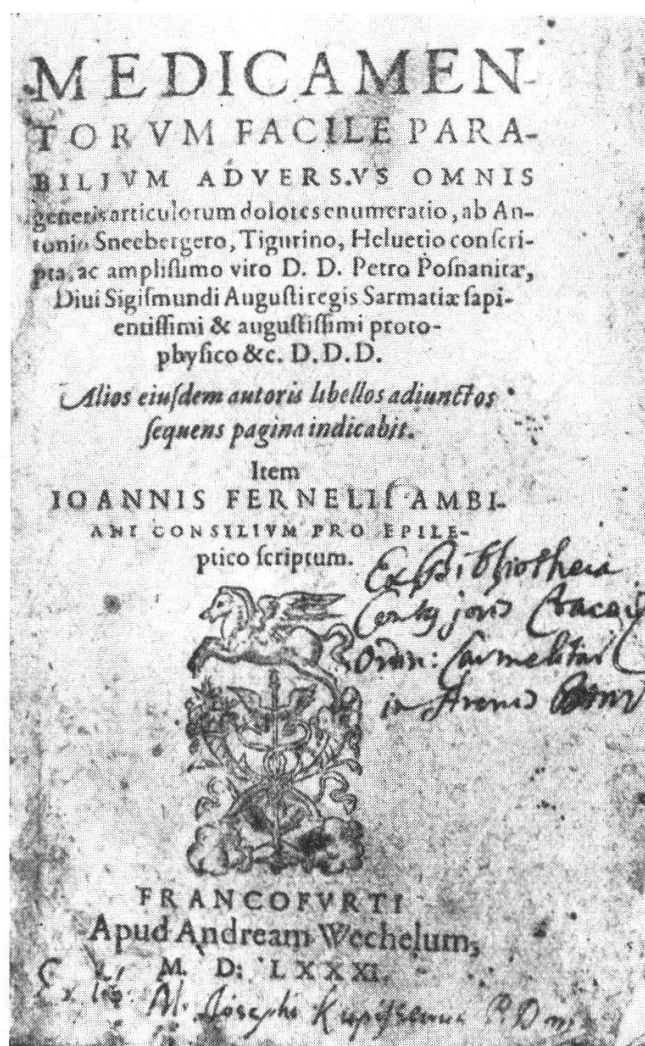 MEDICAMEN-
TORVM FACILE PARA-
BILIVM ADVERSVS OMNIS
generis articulorum dolores enumeratio, ab An-
tonio Sneebergero, Tigurino, Heluetio conſcri-
pta, ac ampliſſimo viro D. D. Petro Poſnanitæ,
Diui Sigiſmundi Auguſti regis Sarmatiæ ſapi-
entiſſimi & auguſtiſſimi proto-
phyſico &c. D.D.D.
Alios eiuſdem autoris libellos adiunctos
ſequens pagina indicabit.
Item
IOANNIS FERNELII AMBI-
ANI CONSILIVM PRO EPILE-
ptico ſcriptum.
Ex Bibliotheca
Ordin: Carmelitar
in Arena
FRANCOFVRTI
Apud Andream Wechelum,
M. D. LXXXI.
Josephi